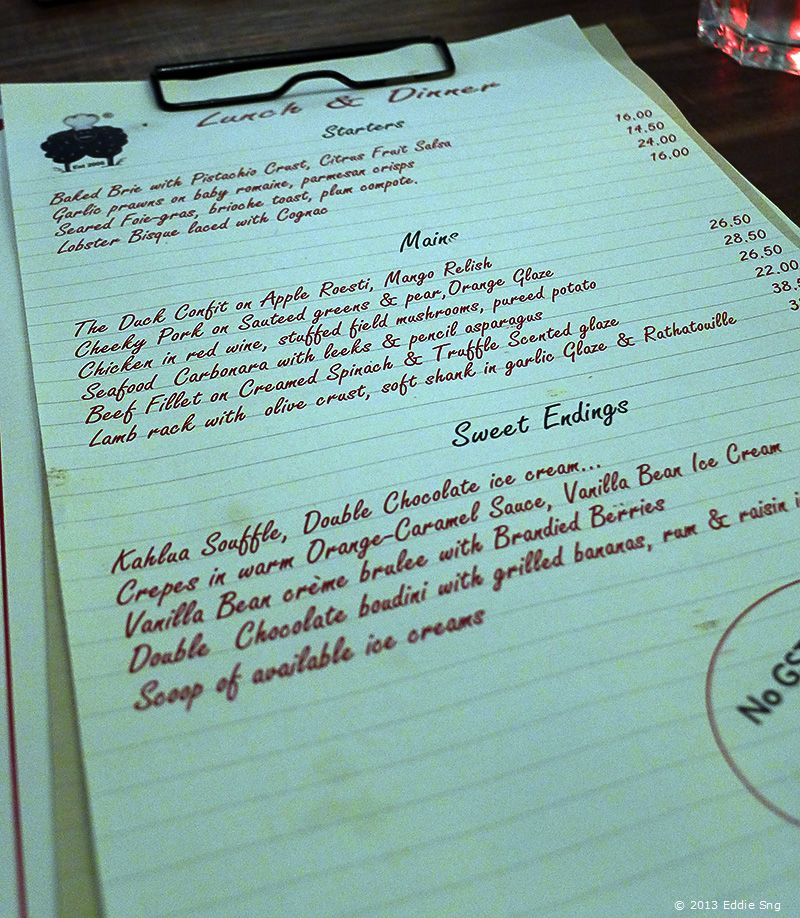 Lunch & Dinner
Est 2005
Starters
Baked Brie with Pistachio Crust, Citrus Fruit Salsa 16.00
Garlic prawns on baby romaine, parmesan crisps 14.50
Seared Foie-gras, brioche toast, plum compote. 24.00
Lobster Bisque laced with Cognac 16.00
Mains
The Duck Confit on Apple Roesti, Mango Relish 26.50
Cheeky Pork on Sauteed greens & pear,Orange Glaze 28.50
Chicken in red wine, stuffed field mushrooms, pureed potato 26.50
Seafood Carbonara with leeks & pencil asparagus 22.00
Beef Fillet on Creamed Spinach & Truffle Scented glaze 38.5
Lamb rack with olive crust, soft shank in garlic Glaze & Rathatouille 3
Sweet Endings
Kahlua Souffle, Double Chocolate ice cream...
Crepes in warm Orange-Caramel Sauce, Vanilla Bean Ice Cream
Vanilla Bean crème brulee with Brandied Berries
Double Chocolate boudini with grilled bananas, rum & raisin i
Scoop of available ice creams
No GST
© 2013 Eddie Sng